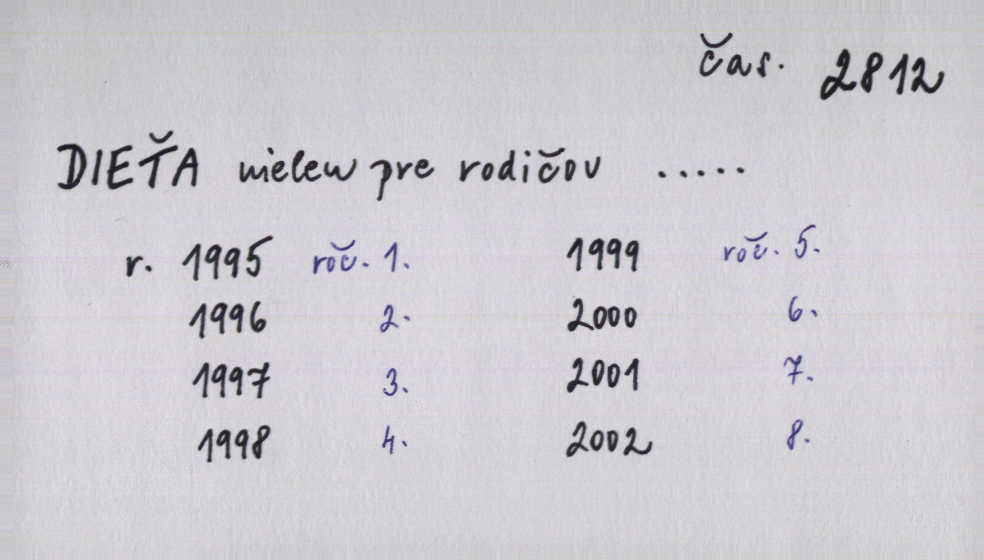 čas. 2812
DIEŤA nielen pre rodičov .....
r. 1995 roč. 1. 1999 roč. 5.
1996 2. 2000 6.
1997 3. 2001 7.
1998 4. 2002 8.